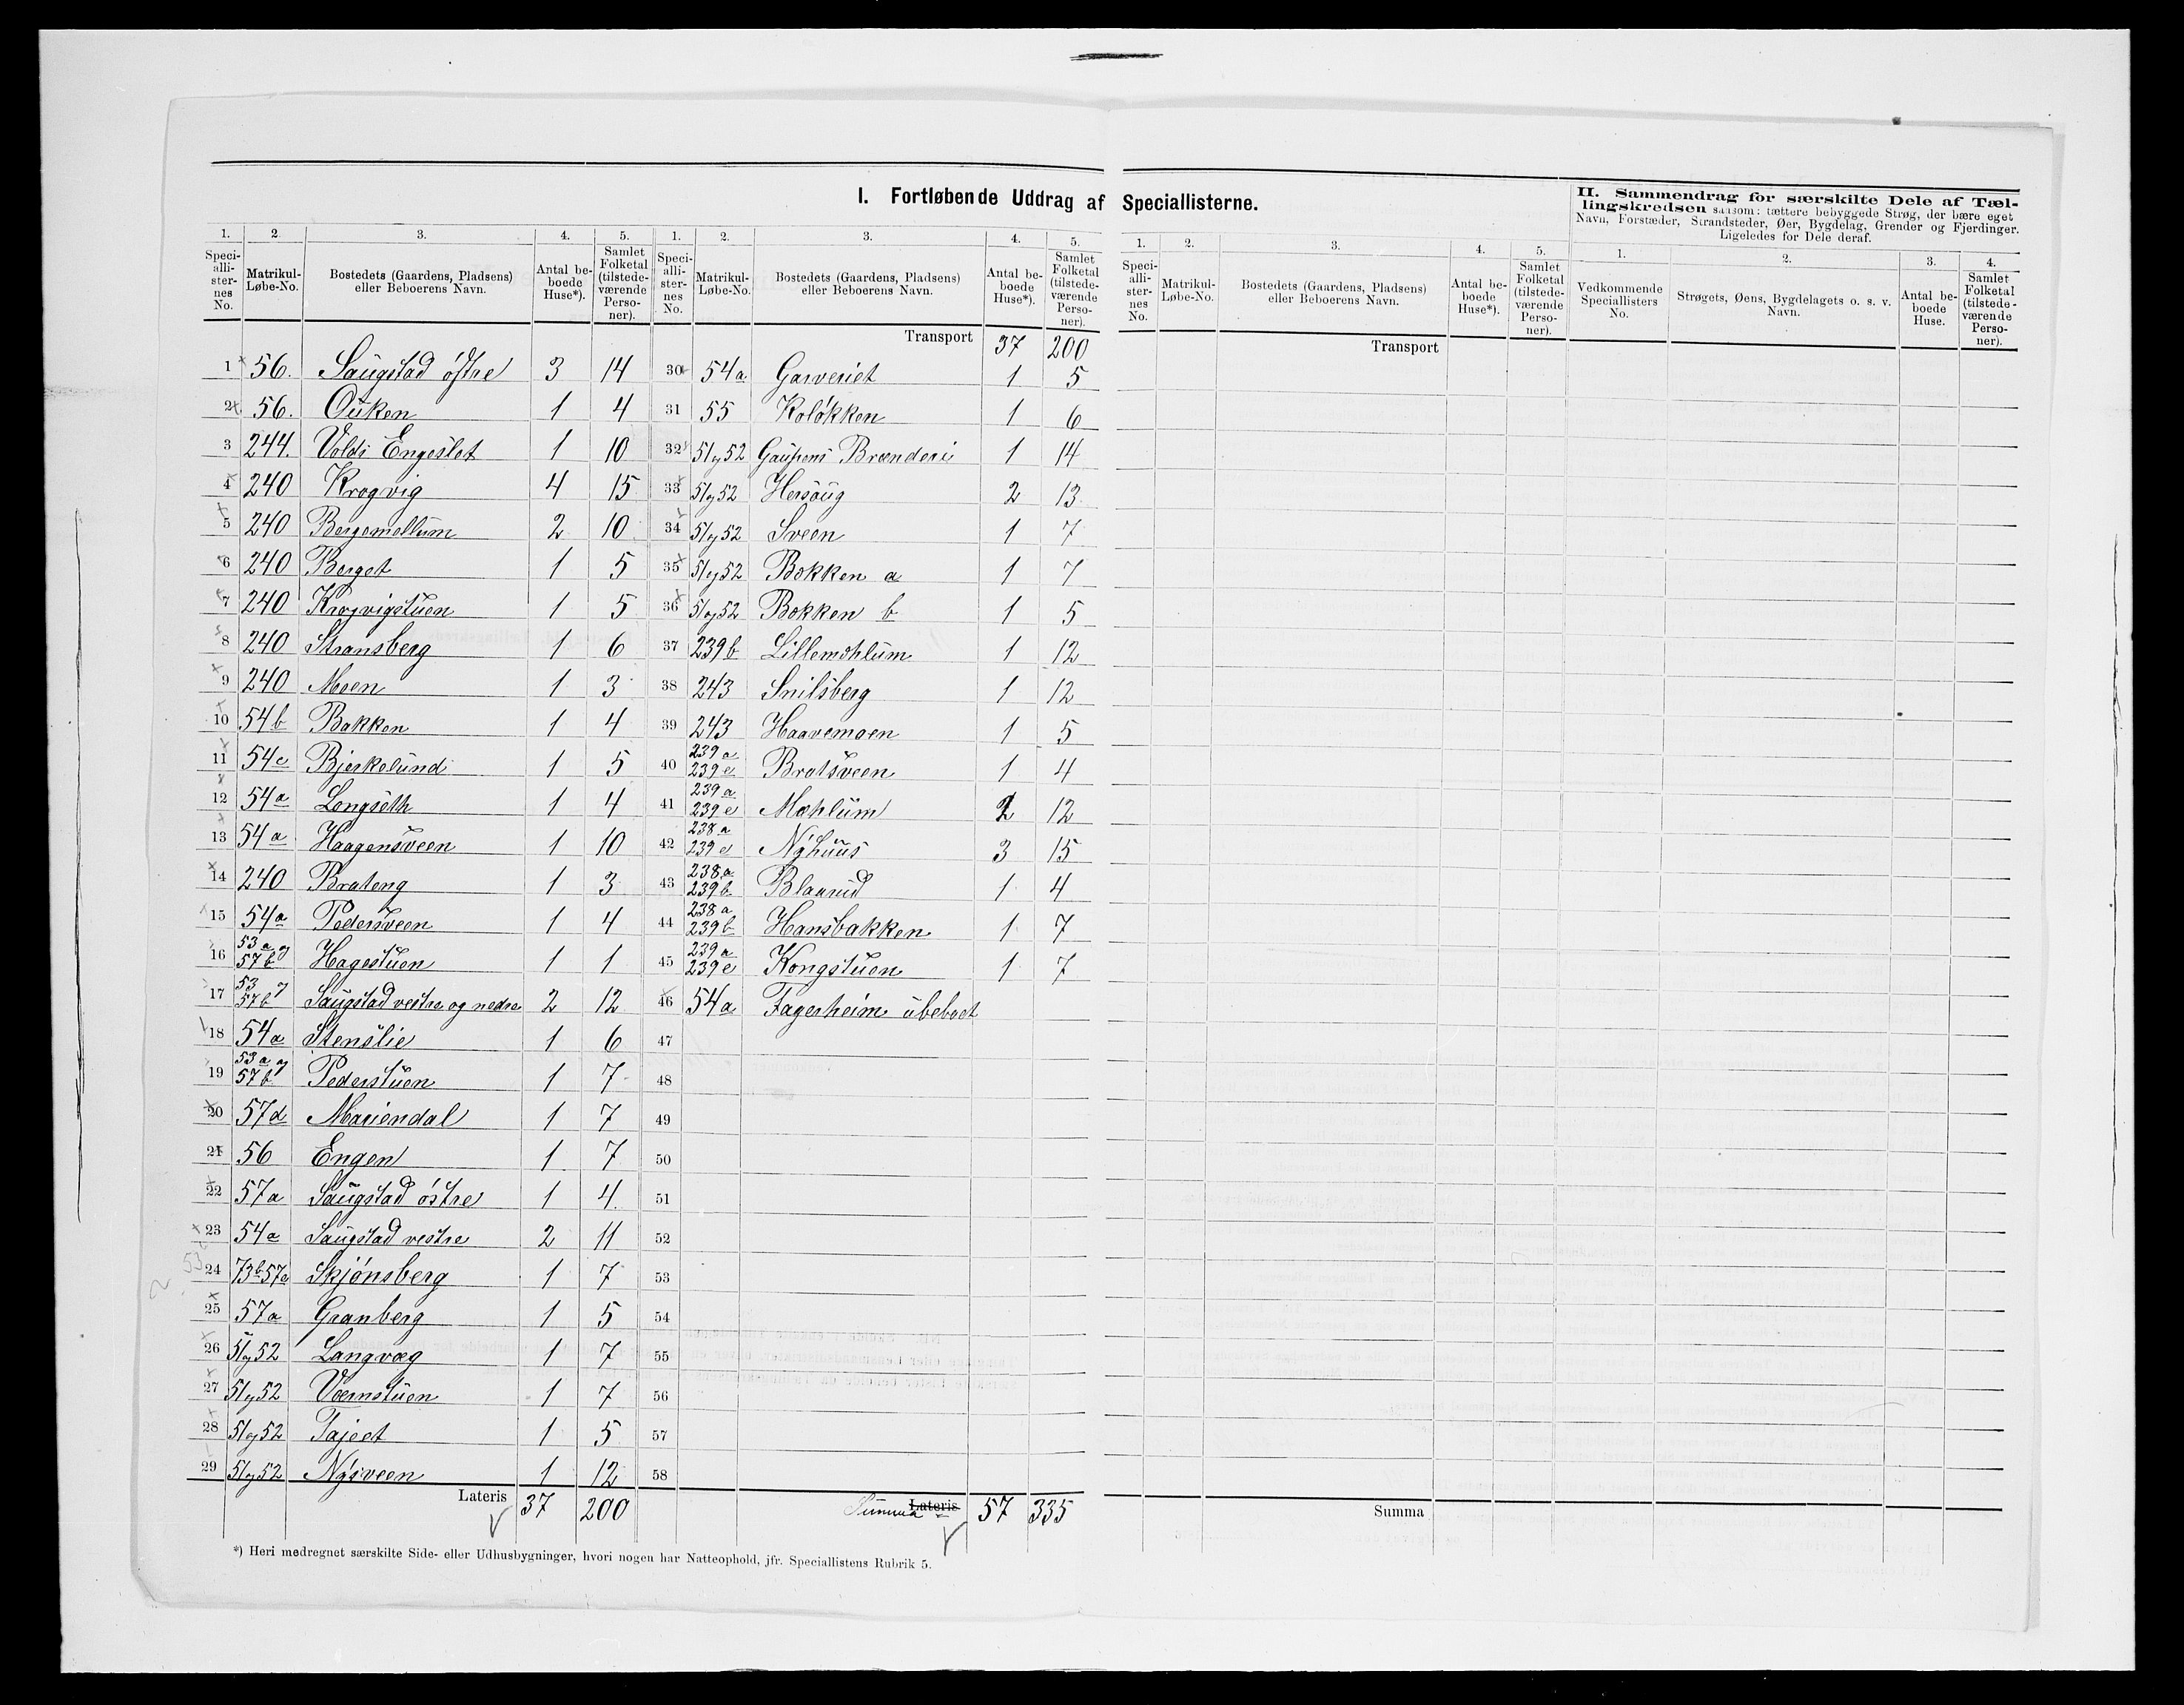 I. Fortløbende Uddrag af Speciallisterne.
II. Sammendrag for særskilte Dele af Tæl-
lingskredsen saasom: tættere bebyggede Strøg, der bære eget
Navn, Forstæder, Strandsteder, Øer, Bygdelag, Grender og Fjerdinger.
Ligeledes for Dele deraf.
1. 2. 3. 4. 5. 1. 2. 3. 4. 5. 1. 2. 3. 4. 5. 1. 2. 3. 4.
Speci-alli-ster-nes No. Matrikul-Løbe-No. Bostedets (Gaardens, Pladsens) eller Beboerens Navn. Antal be-boede Huse*). Samlet Folketal (tilstede-værende Perso-ner).
Speci-alli-ster-nes No. Matrikul-Løbe-No. Bostedets (Gaardens, Pladsens) eller Beboerens Navn. Antal be-boede Huse*). Samlet Folketal (tilstede-værende Perso-ner).
Speci-alli-ster-nes No. Matrikul-Løbe-No. Bostedets (Gaardens, Pladsens) eller Beboerens Navn. Antal be-boede Huse*). Samlet Folketal (tilstede-værende Perso-ner).
Vedkommende Speciallisters No. Strøgets, Øens, Bygdelagets o. s. v. Navn. Antal be-boede Huse. Samlet Folketal (tilstede-værende Perso-ner).
1 56. Saugstad østre 3 14
2 56. Ouken 1 4
3 244. Volds Engeslet 1 10
4 240 Krogvig 4 15
5 240 Bergemellum 2 10
6 240 Berget 1 5
7 240 Krogvigstuen 1 5
8 240 Stransberg 1 6
9 240 Moen 1 3
10 54b Bakken 1 4
11 54c Bjerkelund 1 5
12 54a Lengseth 1 4
13 54a Haagensveen 1 10
14 240 Brateng 1 3
15 54a Pedersveen 1 4
16 53a og 57b Hagestuen 1 1
17 53 og 57b Saugstad vestre og nedre 2 12
18 54a Stenslie 1 6
19 53a og 57b Pederstuen 1 7
20 57d Mariendal 1 7
21 56 Engen 1 7
22 57a Saugstad østre 1 4
23 54a Saugstad vestre 2 11
24 73b 57e Skjønsberg 1 7
25 57a Granberg 1 5
26 51 og 52 Langvæg 1 7
27 51 og 52 Værnstuen 1 7
28 51 og 52 Tajeet 1 5
29 51 og 52 Nysveen 1 12
Lateris 37 200
Transport 37 200
30 54a Garveriet 1 5
31 55 Koløkken 1 6
32 51 og 52 Gaupens Brænderi 1 14
33 51 og 52 Hersoug 2 13
34 51 og 52 Sveen 1 7
35 51 og 52 Bækken a 1 7
36 51 og 52 Bækken b 1 5
37 239b Lillemæhlum 1 12
38 243 Snilsberg 1 12
39 243 Haavemoen 1 5
40 239a 239e Bratsveen 1 4
41 239a 239e Mæhlum 2 12
42 238a 239e Nyhuus 3 15
43 238a 239b Blaarud 1 4
44 238a 239b Hansbakken 1 7
45 239a 239e Kongstuen 1 7
46 54a Fagerheim ubeboet
47
48
49
50
51
52
53
54
55
56
57
58
Summa Lateris 57 335
Transport
Summa
*) Heri medregnet særskilte Side- eller Udhusbygninger, hvori nogen har Natteophold, jfr. Speciallistens Rubrik 5.